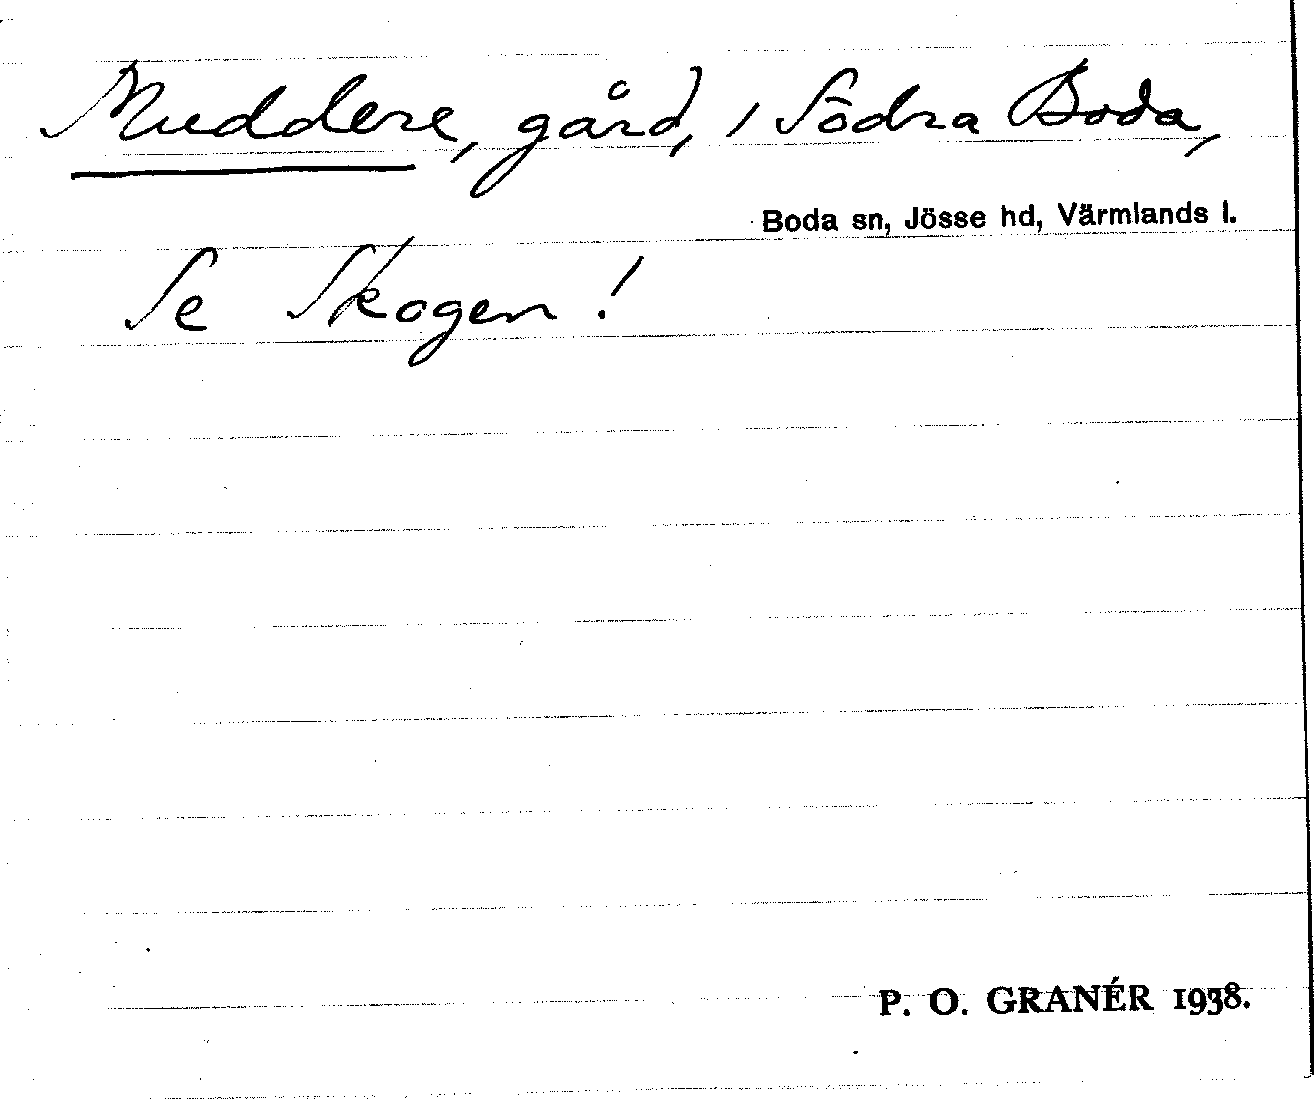 Muddere, gård, i Södra Boda,
Boda sn, Jösse hd, Värmlands l.
Se Skogen!
P. O. GRANÉR 1938.